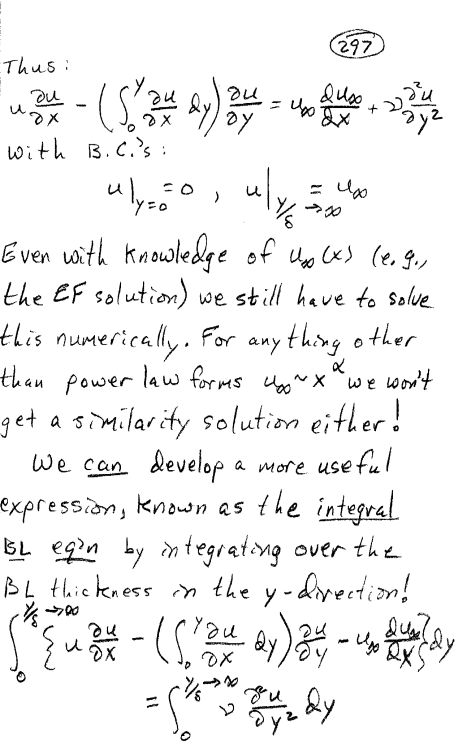 297
Thus:
u ∂u/∂x - (∫₀^y ∂u/∂x dy) ∂u/∂y = u∞ du∞/dx + ν ∂²u/∂y²
with B.C.'s:
u|y=0 = 0 , u|y/δ→∞ = u∞
Even with knowledge of u∞(x) (e.g.,
the EF solution) we still have to solve
this numerically. For anything other
than power law forms u∞ ~ x^α we won't
get a similarity solution either!
We can develop a more useful
expression, known as the integral
BL eq'n by integrating over the
BL thickness in the y-direction!
∫₀^(y/δ→∞) {u ∂u/∂x - (∫₀^y ∂u/∂x dy) ∂u/∂y - u∞ du∞/dx} dy
= ∫₀^(y/δ→∞) ν ∂²u/∂y² dy